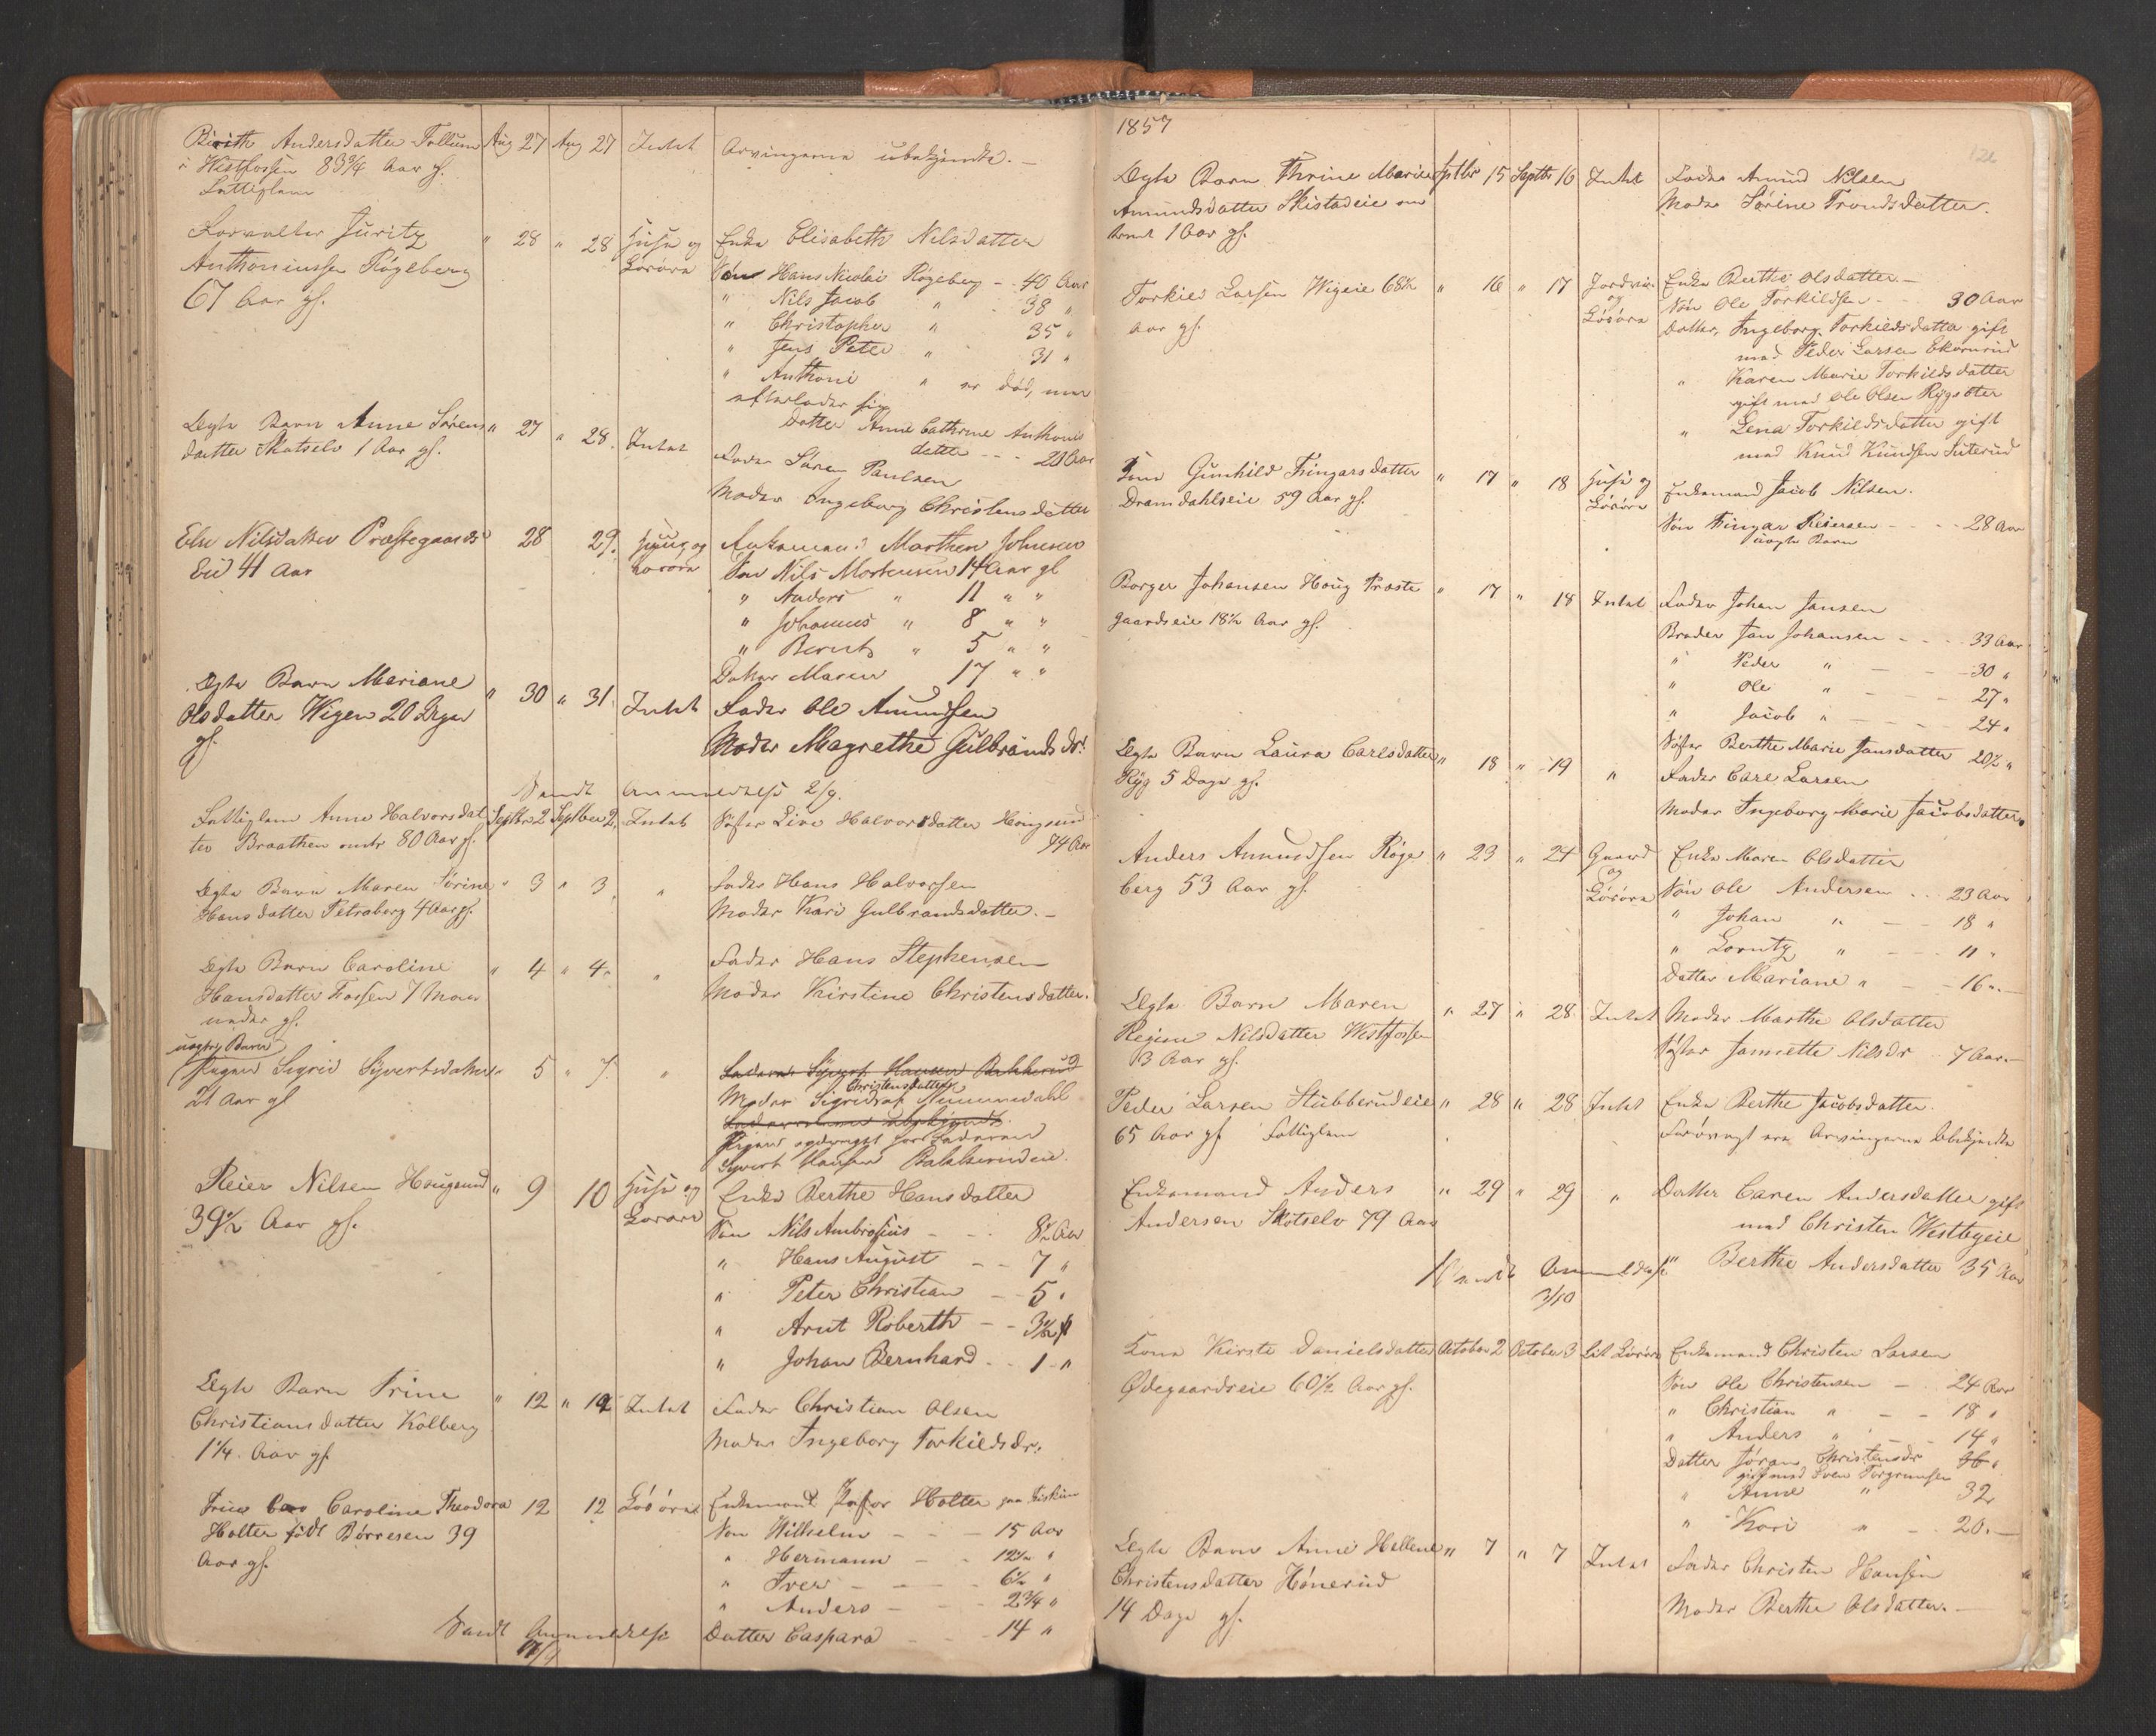 Birith Andersdatter Follum Aug 27 Aug 27 Intet Arvingerne ubekjendte. —
i Westfossen 83 3/4 Aar gl.
Fattiglem
Forvalter Juritz " 28 " 28 Huse og Enke Elisabeth Nilsdatter
Anthoniussen Røgeberg Løsøre Søn Hans Nicolai Røgeberg - - 40 Aar
67 Aar gl. " Nils Jacob " - 38 "
" Christopher " 35 "
" Jens Peter " 31 "
" Anthoni " er död, men
efterlader sig
Datter Anne Cathrine Anthonis
datter - - - 20 Aar
Ægte Barn Anne Sørens " 27 " 28. Intet Fader Søren Paulsen
datter Skotselv 1 Aar gl. Moder Ingeborg Christensdatter
Else Nilsdatter Præstegaards 28 29. Huus og Enkemand Morthen Johnsen
Eie 41 Aar Løsøre Søn Nils Mortensen 14 Aar gl
" Anders " 11 " "
" Johannes " 8 " "
" Bernts " 5 " "
Datter Maren 17 " "
Ægte Barn Mariane " 30 " 31. Intet Fader Ole Amundsen
Olsdatter Wigen 20 Dage Moder Magrethe Gulbrandsdr.
gl.
Sendt Anmeldelse 2/9.
Fattiglem Anne Halvorsdat Septbr 2 Septber 2. Intet Søster Live Halvorsdatter Hougsund
ter Braathen omtr 80 Aar gl. 74 Aar
Ægte Barn Maren Sørine " 3 " 3 " Fader Hans Halvorsen
Hansdatter Petersberg 4 Aar gl. Moder Kari Gulbrandsdatter. —
Ægte Barn Caroline " 4 " 4. " Fader Hans Stephensen
Hansdatter Fossen 7 Maa Moder Kirstine Christensdatter.
neder gl.
uægte Barn
Pigen Sigrid Syvertsdatter " 5 " 7. " Faderen Syvert Hansen Bakkerud
21 Aar gl Christensdatter
Moder Sigrid Nummedahl
Pigen opdraget hos Faderen
Syvert Hansen Bakkerudeie.
Reier Nilsen Hougsund " 9 10 Huse og Enke Berthe Hansdatter
39 1/2 Aar gl. Løsøre Søn Nils Ambrosius - - 8 1/2 Aar
" Hans August - - 7 "
" Peter Christian - 5 "
" Arnt Roberth - - 3 1/2 "
" Johan Bernhard - - 1 - "
Ægte Barn Trine " 12 " 12 Intet Fader Christian Olsen
Christiansdatter Kolberg Moder Ingeborg Torkildsdr.
1 1/4 Aar gl.
Fruen Caroline Theodora 12 12 Løsøre Enkemand Holter paa Fiskum
Holter födt Börresen 39 Søn Wilhelm - - - 15 Aar
Aar gl. " Hermann - - 12 1/2 "
" Iver - - - 6 1/2 "
" Anders - - - 2 3/4 "
Sendt Anmeldelse Datter Caspara - - 14 "
1857
126
Ægte Barn Thrine Marie Septbr 15 Septbr 16 Intet Fader Amund Nilsen
Amundsdatter Skistadeie om Moder Sørine Trondsdatter.
trent 1 Aar gl.
Torkild Larsen Wigeie 68 1/2 " 16 " 17 Jordeie Enke Berthe Olsdatter —
Aar gl. og Søn Ole Torkildsen - - 30 Aar
Løsøre Datter, Ingeborg Torkildsdatter gift
med Peder Larsen Ekornrud
" Karen Marie Torkildsdatter
gift med Ole Olsen Rygsöter
" Lena Torkildsdatter gift
med Knud Knudsen Suterud
Kone Gunhild Fingarsdatter " 17 " 18 Huse og Enkemand Jacob Nilsen.
Dramdahlseie 59 Aar gl. Løsøre Søn Fingar Reiersen - - - - 28 Aar
uægte Barn
Borger Johansen Houg Præste " 17 " 18 Intet Fader Johan Jansen
gaardseie 18 1/2 Aar gl. Broder Jan Johansen - - - - 33 Aar
" Peder " - - - 30 "
" Ole " - - - 27 "
" Jacob " - - - 24 "
Søster Berthe Marie Jansdatter 20 1/2 "
Ægte Barn Laura Carlsdatter " 18 " 19 " Fader Carl Larsen
Ryg 5 Dage gl. Moder Ingeborg Marie Jacobsdatter.
Anders Amundsen Røge " 23 " 24 Gaard Enke Maren Olsdatter
berg 53 Aar gl. og Søn Ole Andersen - - 23 Aar
Løsøre " Johan " - - 18 "
" Lorntz " - - - 11 "
Datter Mariane " - - 16 " —
Ægte Barn Maren " 27 " 28 Intet Moder Marthe Olsdatter
Regine Nilsdatter Westfossen Søster Jannette Nilsdr 7 Aar —
3 Aar gl.
Peder Larsen Stubberudeie " 28 " 28 Intet Enke Berthe Jacobsdatter.
65 Aar gl Fattiglem Forøvrigt ere Arvingerne ubekjendte
Enkemand Anders " 29 " 29 " Datter Caren Andersdatter gift
Andersen Skotselv 79 Aar med Christen Westbyeie
Sendt Anmeldelse " Berthe Andersdatter 35 Aar
3/10
Kone Kirsti Danielsdatter October 2 October 3 Lidt Løsøre Enkemand Christen Larsen
Ødegaardseie 60 1/2 Aar gl. Søn Ole Christensen - 24 Aar
" Christian " - - 18 "
" Anders " - - 14 "
Datter Jöran Christensdr 36 "
gift med Sven Torgrimsen
" Anne " 32 "
" Kari " - 20. —
Ægte Barn Anne Hellene " 7 " 7 Intet Fader Christen Hansen
Christensdatter Hönerud Moder Berthe Olsdatter. —
14 Dage gl.